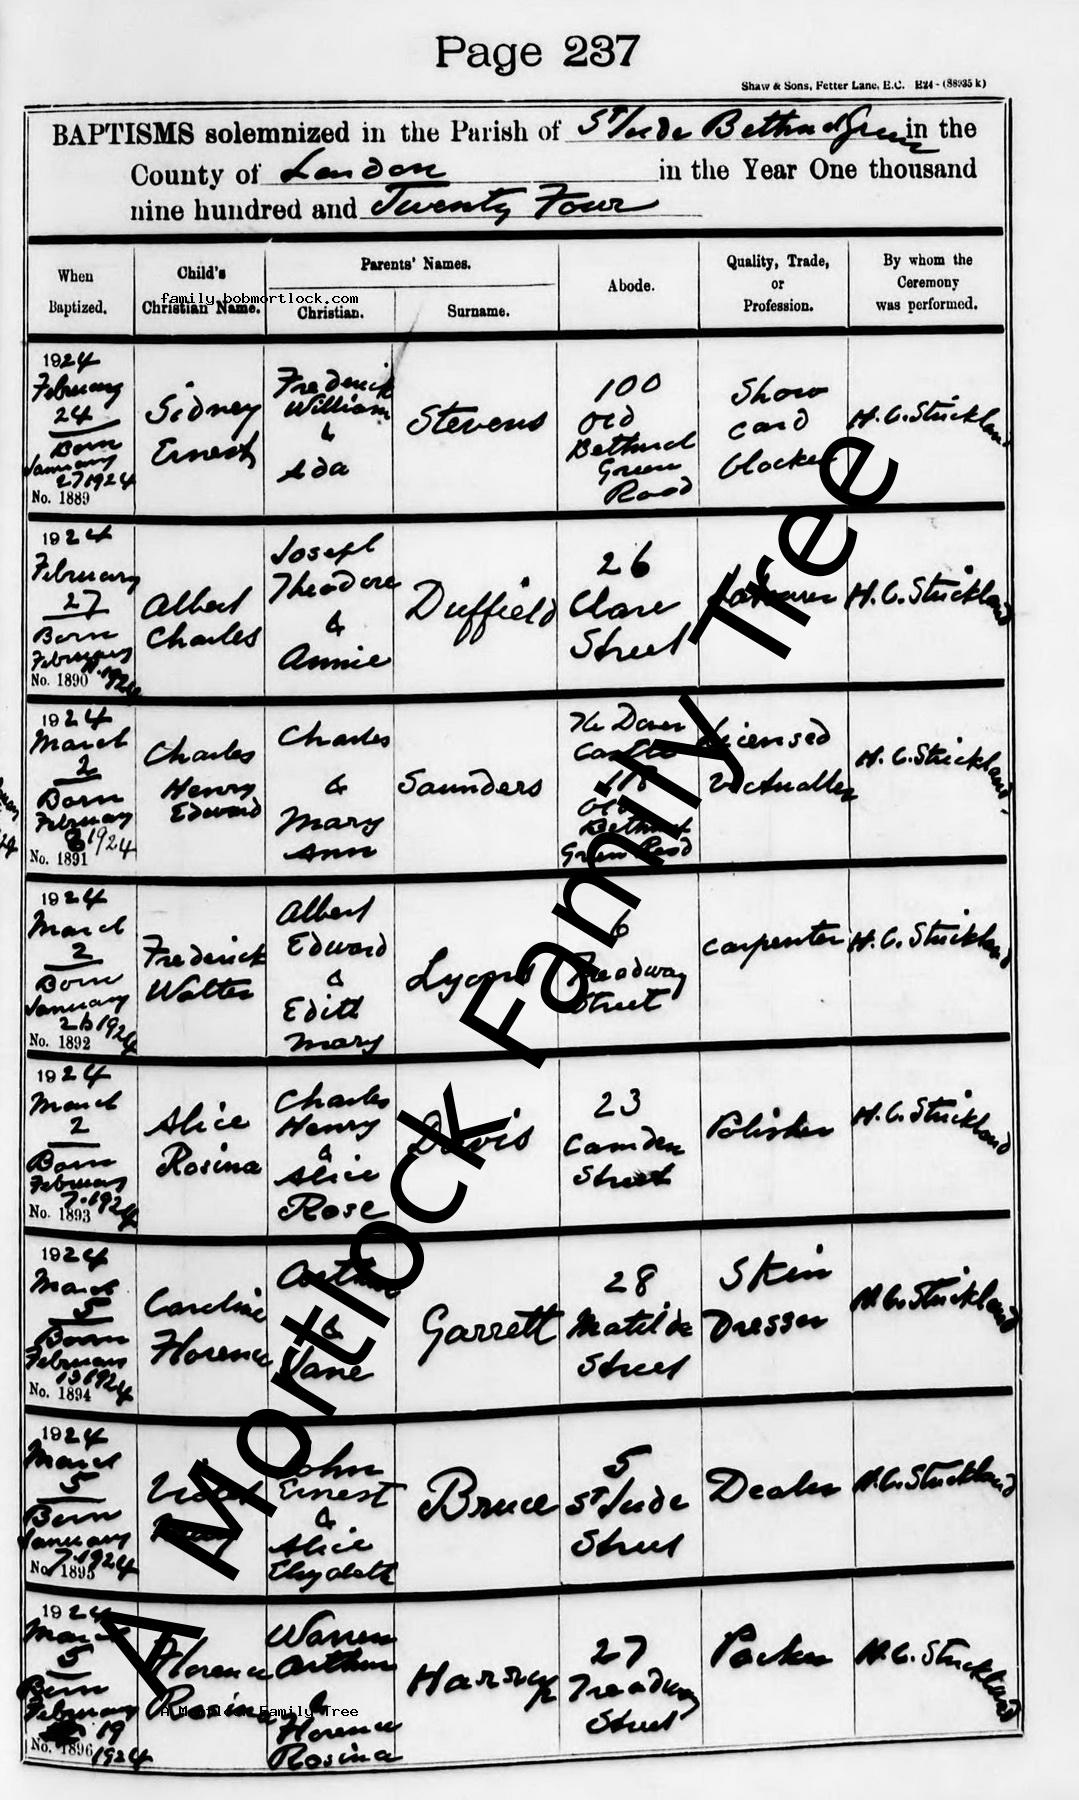 Page 237
Shaw & Sons, Fetter Lane, E.C. E24-(88935 k)
BAPTISMS solemnized in the Parish of St Jude Bethnal Green in the
County of London in the Year One thousand
nine hundred and Twenty Four
When
Baptized.
Child's
Christian Name.
Parents' Names.
Christian.
Surname.
Abode.
Quality, Trade,
or
Profession.
By whom the
Ceremony
was performed.
family.bobmortlock.com
1924
February
24
Born
January
27 1924
No. 1889
Sidney
Ernest
Frederick
William
&
Ada
Stevens
100
Old
Bethnal
Green
Road
Show
card
blocker
H. C. Strickland
1924
February
27
Born
February
1924
No. 1890
Albert
Charles
Joseph
Theodore
&
Annie
Duffield
26
Clare
Street
Labourer
H. C. Strickland
1924
March
2
Born
February
1924
No. 1891
Charles
Henry
Edward
Charles
&
Mary
Ann
Saunders
The Dover
Castle
118
Old
Bethnal
Green Road
Licensed
Victualler
H. C. Strickland
1924
March
2
Born
January
26 1924
No. 1892
Frederick
Walter
Albert
Edward
&
Edith
Mary
Lyons
6
Treadway
Street
Carpenter
H. C. Strickland
1924
March
2
Born
February
7. 1924
No. 1893
Alice
Rosina
Charles
Henry
&
Alice
Rose
Davis
23
Camden
Street
Polisher
H. C. Strickland
1924
March
5
Born
February
13 1924
No. 1894
Caroline
Florence
Arthur
&
Jane
Garrett
28
Matilda
Street
Skin
Dresser
H. C. Strickland
1924
March
5
Born
January
7. 1924
No. 1895
John
Ernest
&
Alice
Elizabeth
Bruce
5
St Jude
Street
Dealer
H. C. Strickland
1924
March
5
Born
February
19
1924
No. 1896
Florence
Rosina
Warren
Arthur
&
Florence
Rosina
27
Treadway
Street
Packer
H. C. Strickland
A Mortlock Family Tree
A Mortlock Family Tree